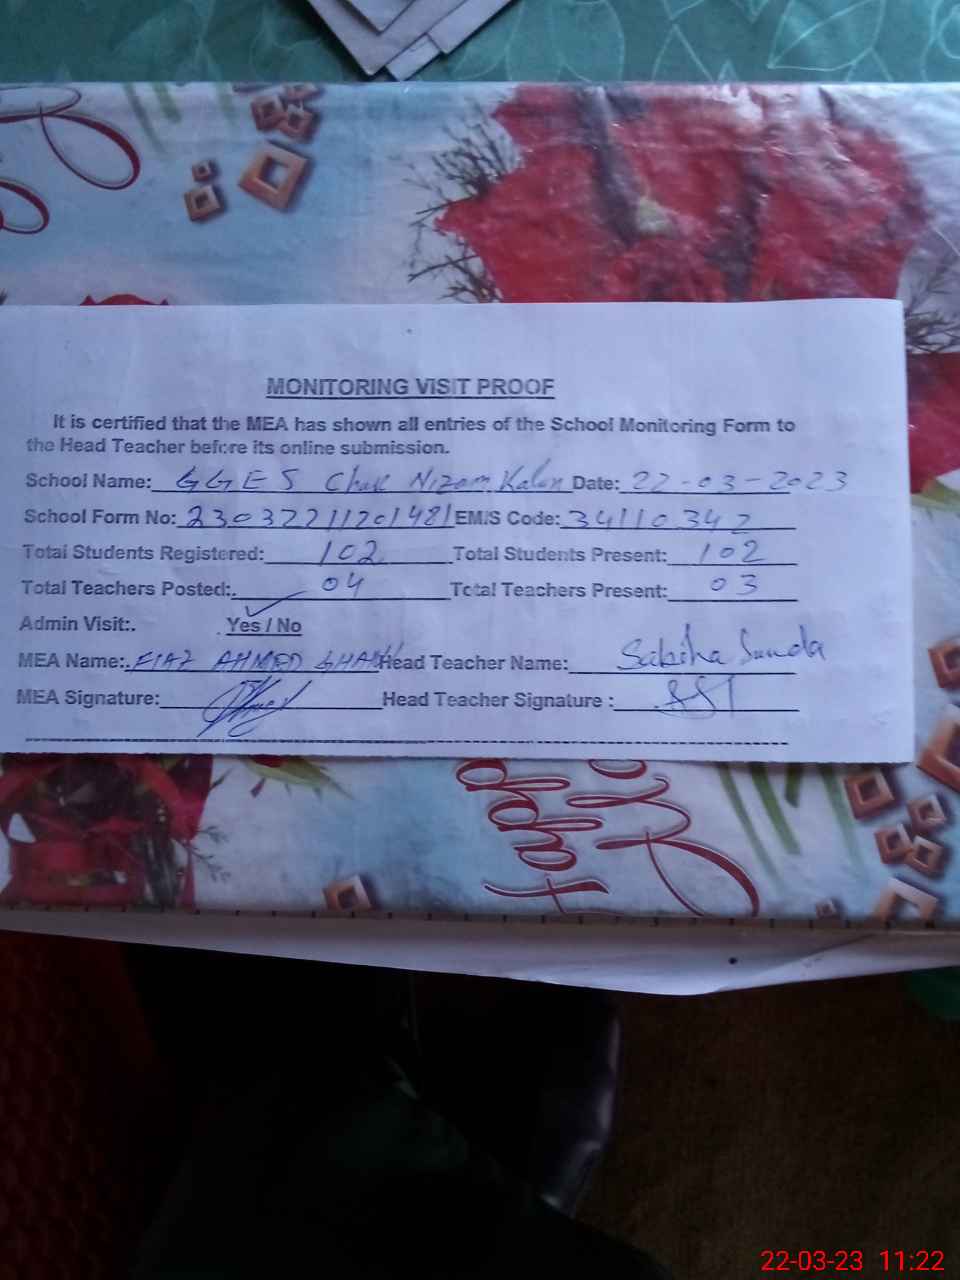 MONITORING VISIT PROOF
It is certified that the MEA has shown all entries of the School Monitoring Form to
the Head Teacher before its online submission.
School Name: GGES Chak Nizam Kalan Date: 22-03-2023
School Form No: 23032211201481 EMIS Code: 34110342
Total Students Registered: 102 Total Students Present: 102
Total Teachers Posted:. 04 Total Teachers Present: 03
Admin Visit:. Yes / No
MEA Name:. FIAZ AHMED GHANI Head Teacher Name: Sabiha
MEA Signature: Head Teacher Signature :
22-03-23 11:22